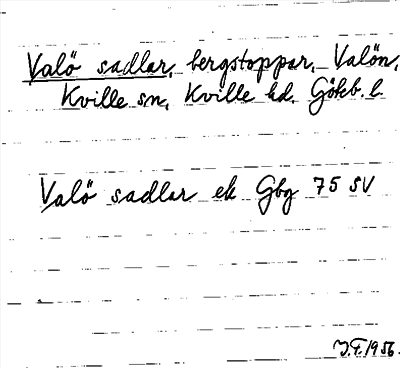 Valö sadlar, bergstoppar, Valön,
Kville sn, Kville hd. Götb. l.
Valö sadlar ek Gbg 75 SV
J.F. 1956.